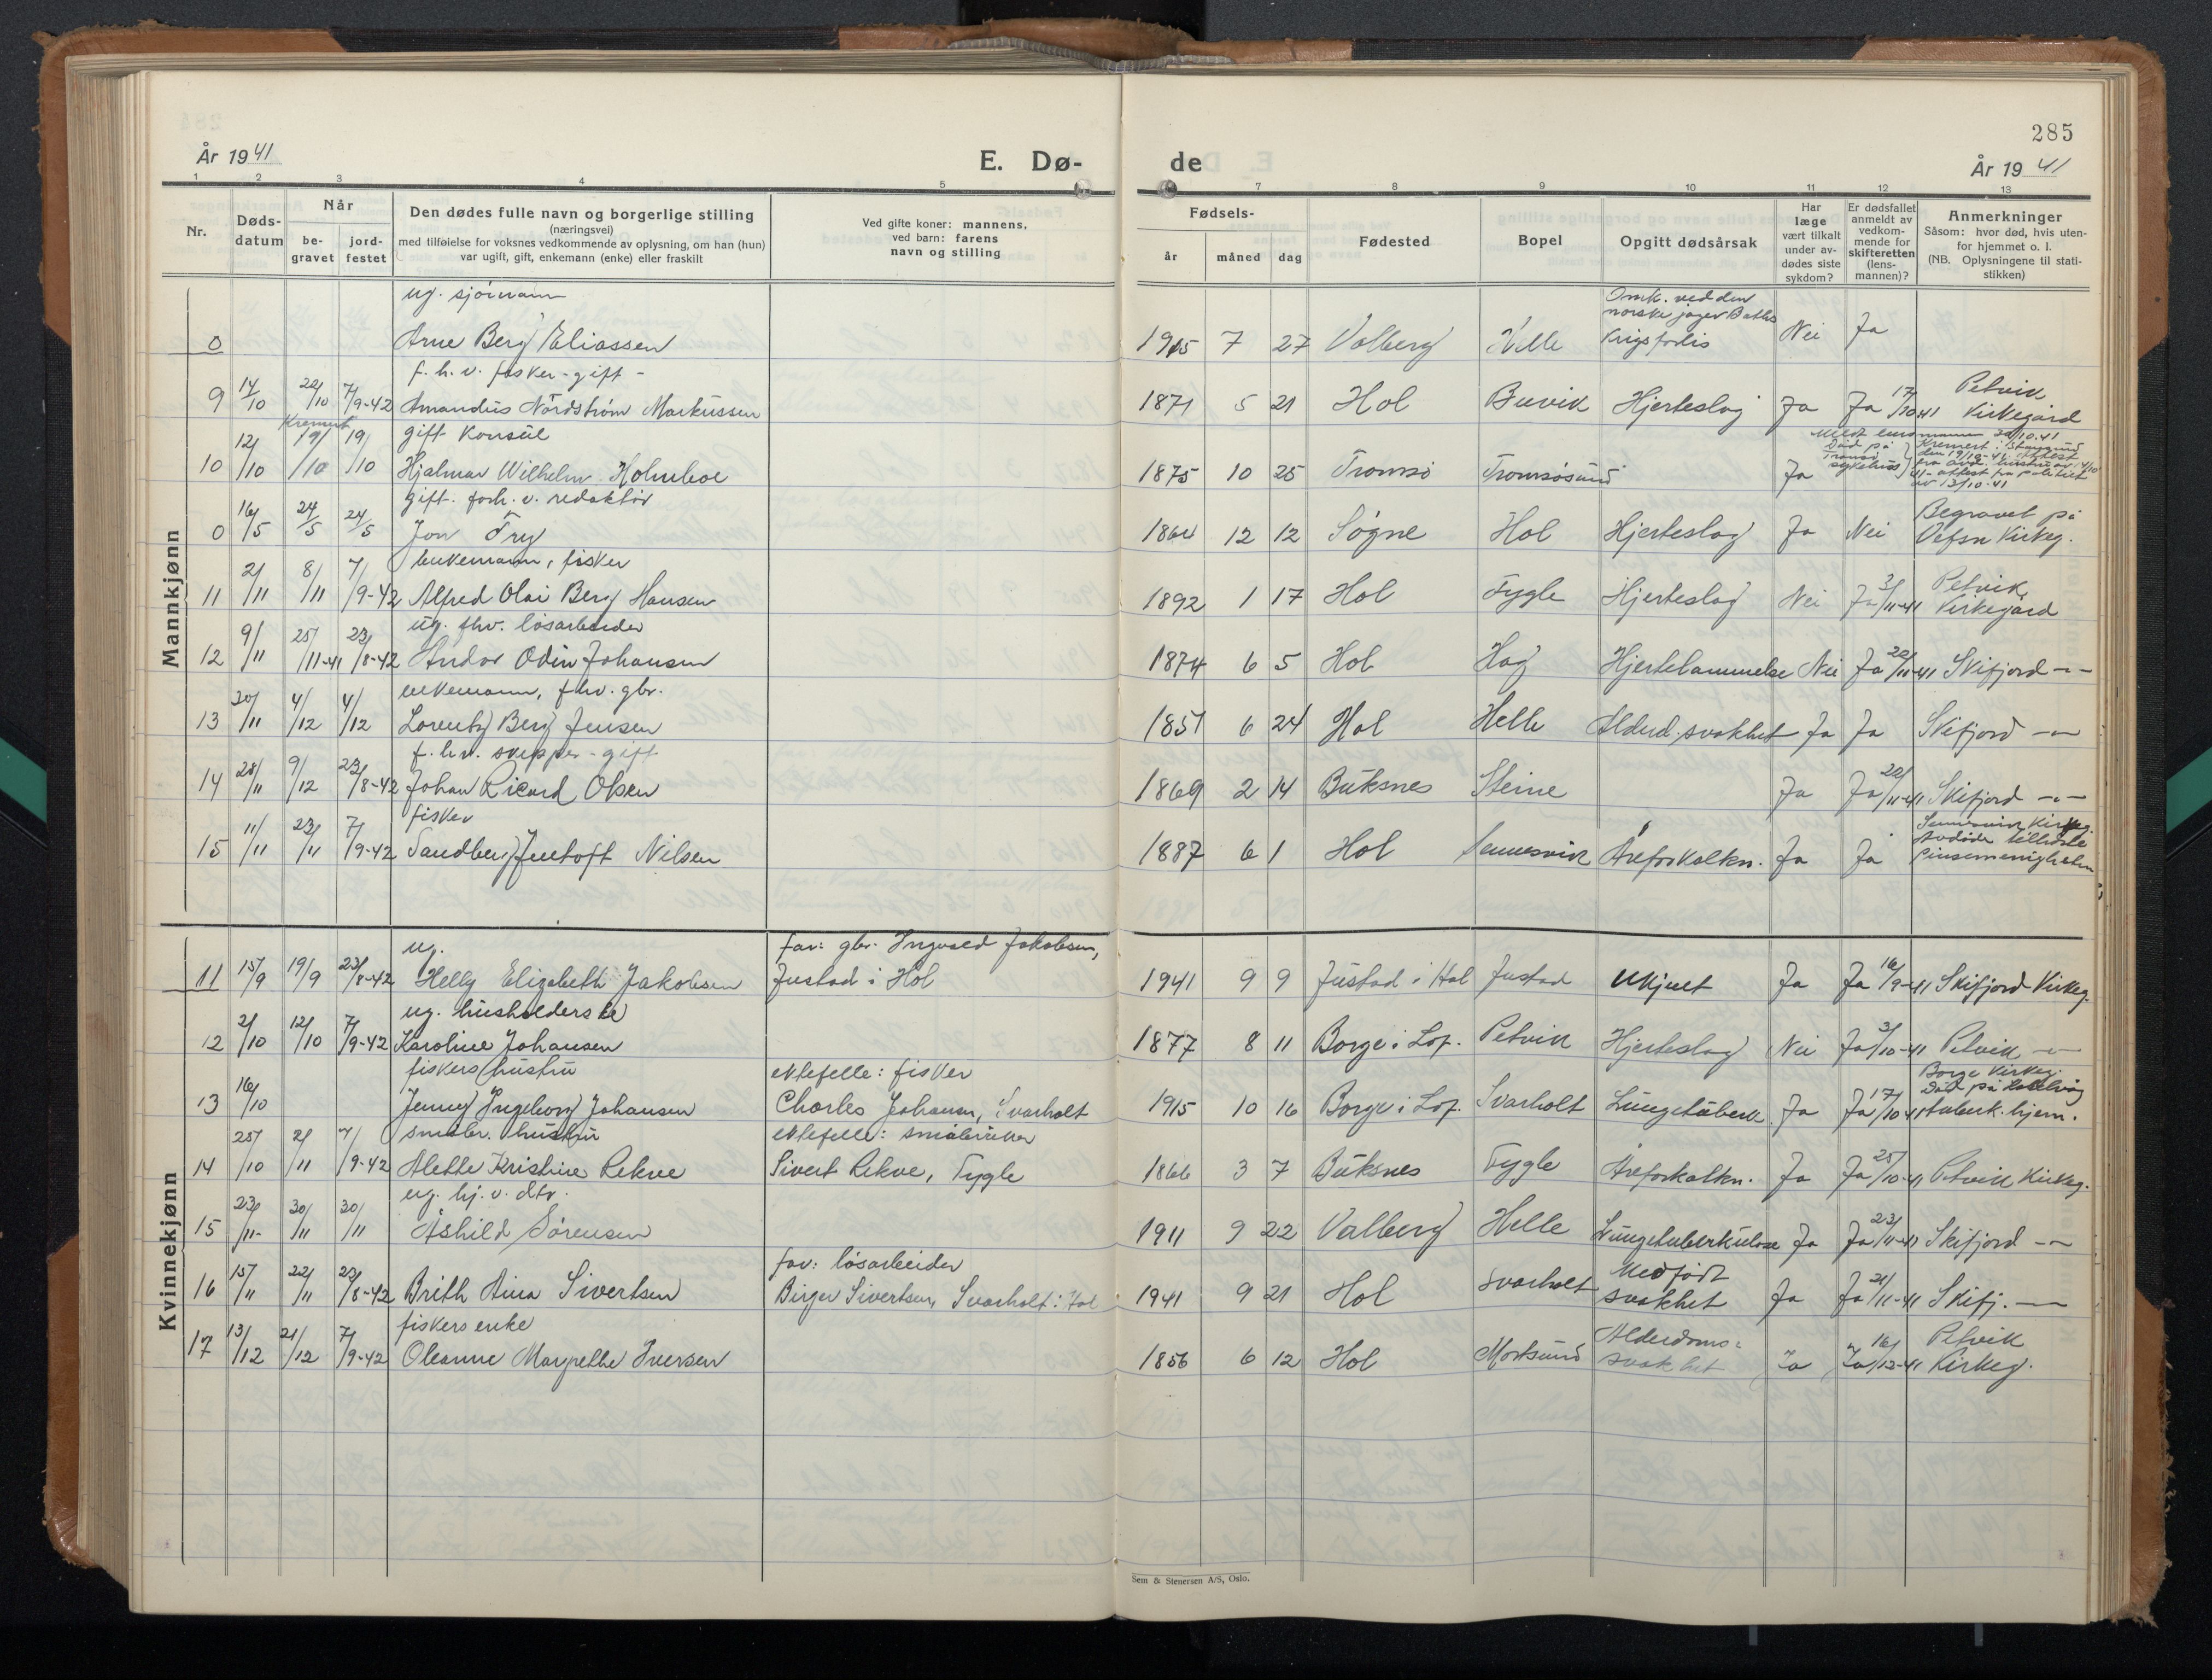 285
År 1941
E. Dø-
de
År 1941
1 2 3 4 5 7 8 9 10 11 12 13
Nr.
Døds-
datum
Når
be-
gravet
jord-
festet
Den dødes fulle navn og borgerlige stilling
(næringsvei)
med tilføielse for voksnes vedkommende av oplysning, om han (hun)
var ugift, gift, enkemann (enke) eller fraskilt
Ved gifte koner: mannens,
ved barn: farens
navn og stilling
Fødsels-
år måned dag
Fødested
Bopel
Opgitt dødsårsak
Har
læge
vært tilkalt
under av-
dødes siste
sykdom?
Er dødsfallet
anmeldt av
vedkom-
mende for
skifteretten
(lens-
mannen)?
Anmerkninger
Såsom: hvor død, hvis uten-
for hjemmet o. l.
(NB. Oplysningene til stati-
stikken)
Mannkjønn
ug. sjømann
Omk. ved den
norske jager
0 Arne Berg Eliassen 1915 7 27 Valberg Helle krigsforlis Nei Ja
f. h. v. fisker - gift -
9 14/10 22/10 7/9-42 Amandus Nordstrøm Markussen 1871 5 21 Hol Buvik Hjerteslag Ja Ja 17/10 41 Petvik Kirkegård
Kremert
gift konsul
10 12/10 19/10 19/10 Hjalmar Wilhelm Holmboe 1875 10 25 Tromsø Tromsøsund Ja
Død på
Tromsø
sykehus
Kremert i
den 19/10-41
attest fra politiet
av 13/10-41
gift. forh. v. redaktør
0 16/5 24/5 24/5 Jon Try 1864 12 12 Søgne Hol Hjerteslag Ja Nei Begravet på
Vefsn Kirkeg.
enkemann, fisker
11 2/11 8/11 7/9-42 Alfred Olai Berg Hansen 1892 1 17 Hol Fygle Hjerteslag Nei Ja 3/11-41 Petvik Kirkegård
ug. fhv. løsarbeider
12 9/11 25/11-41 23/8-42 Andor Odin Johansen 1874 6 5 Hol Hag Hjertelammelse Nei Ja 20/11-41 Skifjord -"-
enkemann, fhv. gbr.
13 30/11 4/12 4/12 Lorentz Berg Jensen 1851 6 24 Hol Helle Alderd.svakhet Ja Ja Skifjord -"-
f. h. v. skipper - gift
14 28/11 9/12 23/8-42 Johan Ricard Olsen 1869 2 14 Buksnes Steine Ja Ja 20/11-41 Skifjord -"-
fisker
15 11/11 23/11 7/9-42 Sandberg Jentoft Nilsen 1887 6 1 Hol Sennesvik Åreforkalkn. Ja Ja Sennesvik Kirkeg.
Avdøde tilhørte
Pinsemenigheten
Kvinnekjønn
ug. far: gbr. Ingvald Jakobsen,
11 15/9 19/9 23/8-42 Helly Elizabeth Jakobsen Justad i Hol 1941 9 9 Justad i Hol Justad Ukjent Ja Ja 16/9-41 Skifjord Kirkeg.
ug. husholderske
12 2/10 12/10 7/9-42 Karoline Johansen 1877 8 11 Borge i Lof. Petvik Hjerteslag Nei Ja 3/10-41 Petvik -"-
fiskers hustru ektefelle: fisker
13 16/10 Jenny Ingeborg Johansen Charles Johansen, Svarholt 1915 10 16 Borge i Lof. Svarholt Lungetuberk. Ja Ja 17/10-41 Borge Kirkeg.
Død på
tuberk.hjem.
småbr. hustru ektefelle: småbruker
14 25/10 2/11 7/9-42 Alette Kristine Rekve Sivert Rekve, Fygle 1866 3 7 Buksnes Fygle Åreforkalkn. Ja Ja 25/10-41 Petvik Kirkeg.
ug. hj. v. dtr.
15 23/11 30/11 30/11 Åshild Sørensen 1911 9 22 Valberg Helle Lungetuberkulose Ja Ja 23/11-41 Skifjord -"-
far: løsarbeider
16 15/11 22/11 23/8-42 Brith Aina Sivertsen Birger Sivertsen, Svarholt i Hol 1941 9 21 Hol Svarholt Medfødt svakhet Ja Ja 21/11-41 Skifj. -"-
fiskers enke
17 13/12 21/12 7/9-42 Oleanne Margrethe Iversen 1856 6 12 Hol Mortsund Alderdoms=
svakhet Ja Ja 16/12-41 Petvik Kirkeg.
Sem & Stenersen A/S, Oslo.